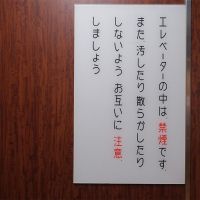 エレベーターの中は 禁煙です.
また 汚したり 散らかしたり
しないよう お互いに 注意.
しましょう